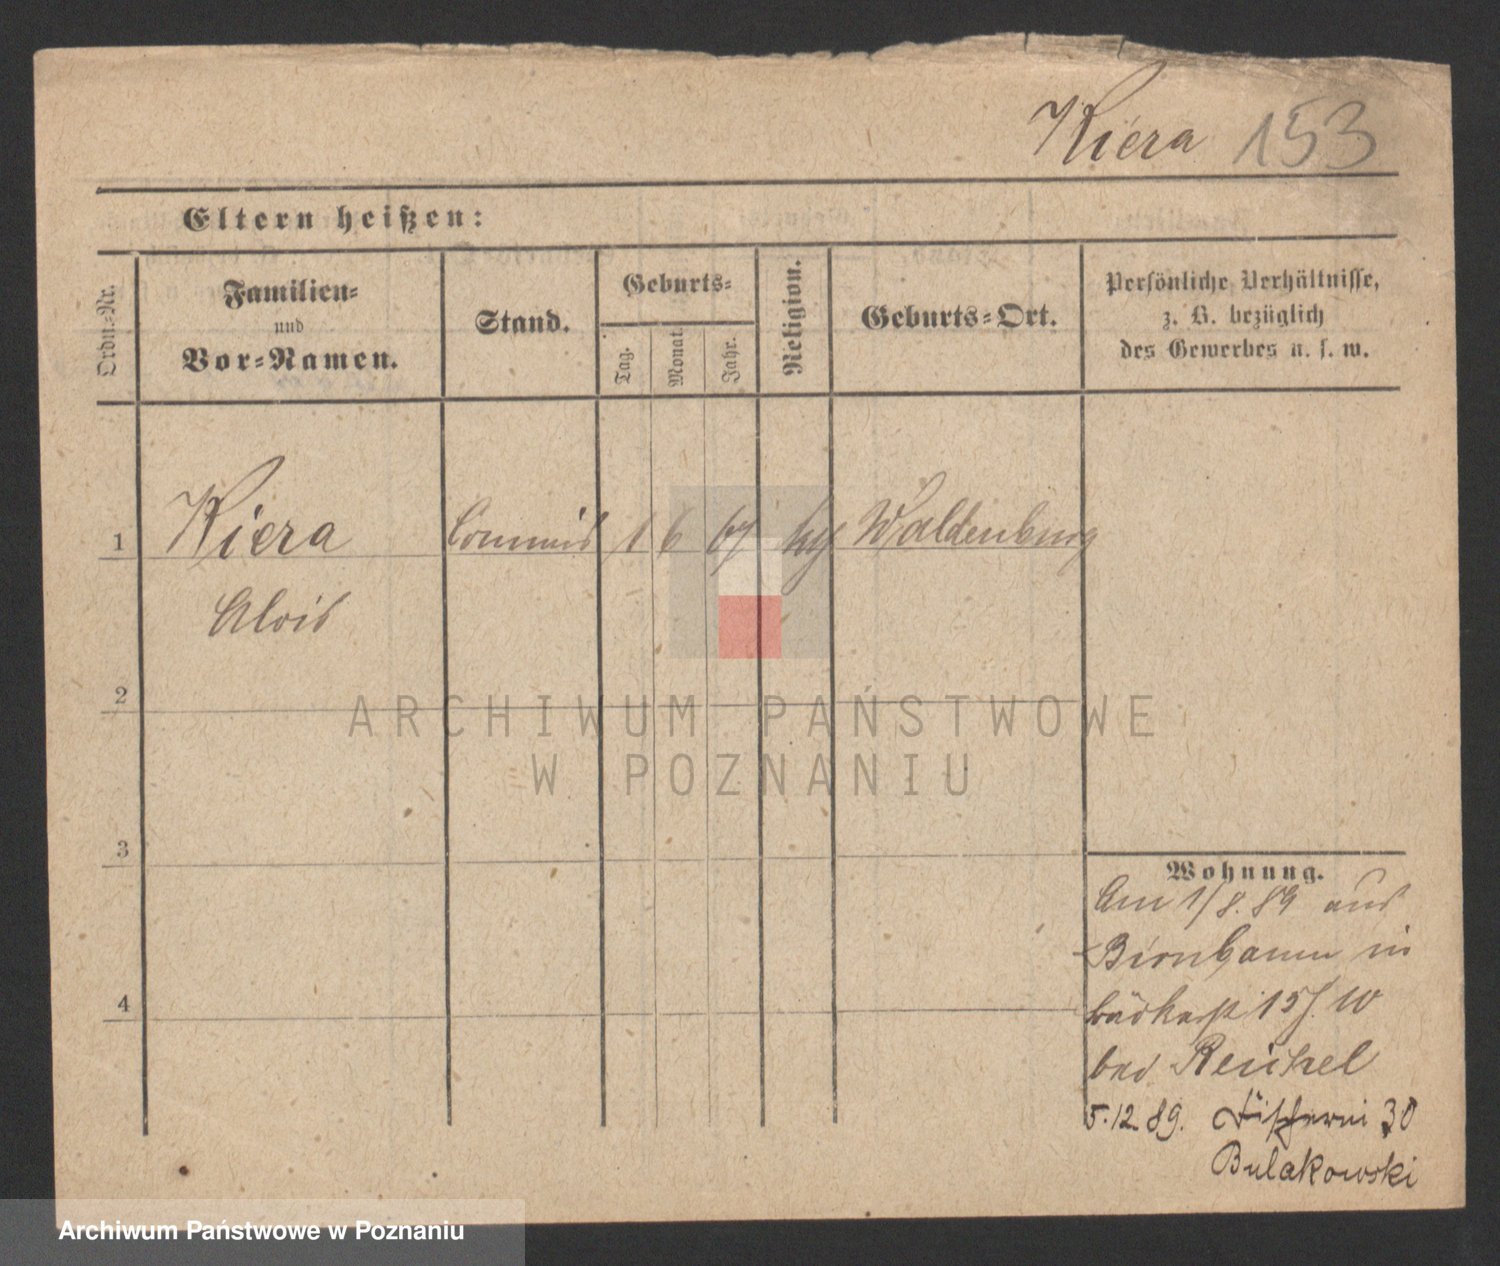 Kiera 153
Eltern heißen:
Ordn.-Nr.
Familien-
und
Vor-Namen.
Stand.
Geburts-
Tag.
Monat
Jahr.
Religion.
Geburts-Ort.
Persönliche Verhältnisse,
z. B. bezüglich
des Gewerbes u. s. w.
1 Kiera Commis 1 6 67 Waldenburg
Alois
2
3
4
Wohnung.
Am 1/8. 89 aus
Birnbaum in
15/. W
bei Reichel
5.12.89. 30
Bulakowski
ARCHIWUM PAŃSTWOWE
W POZNANIU
Archiwum Państwowe w Poznaniu